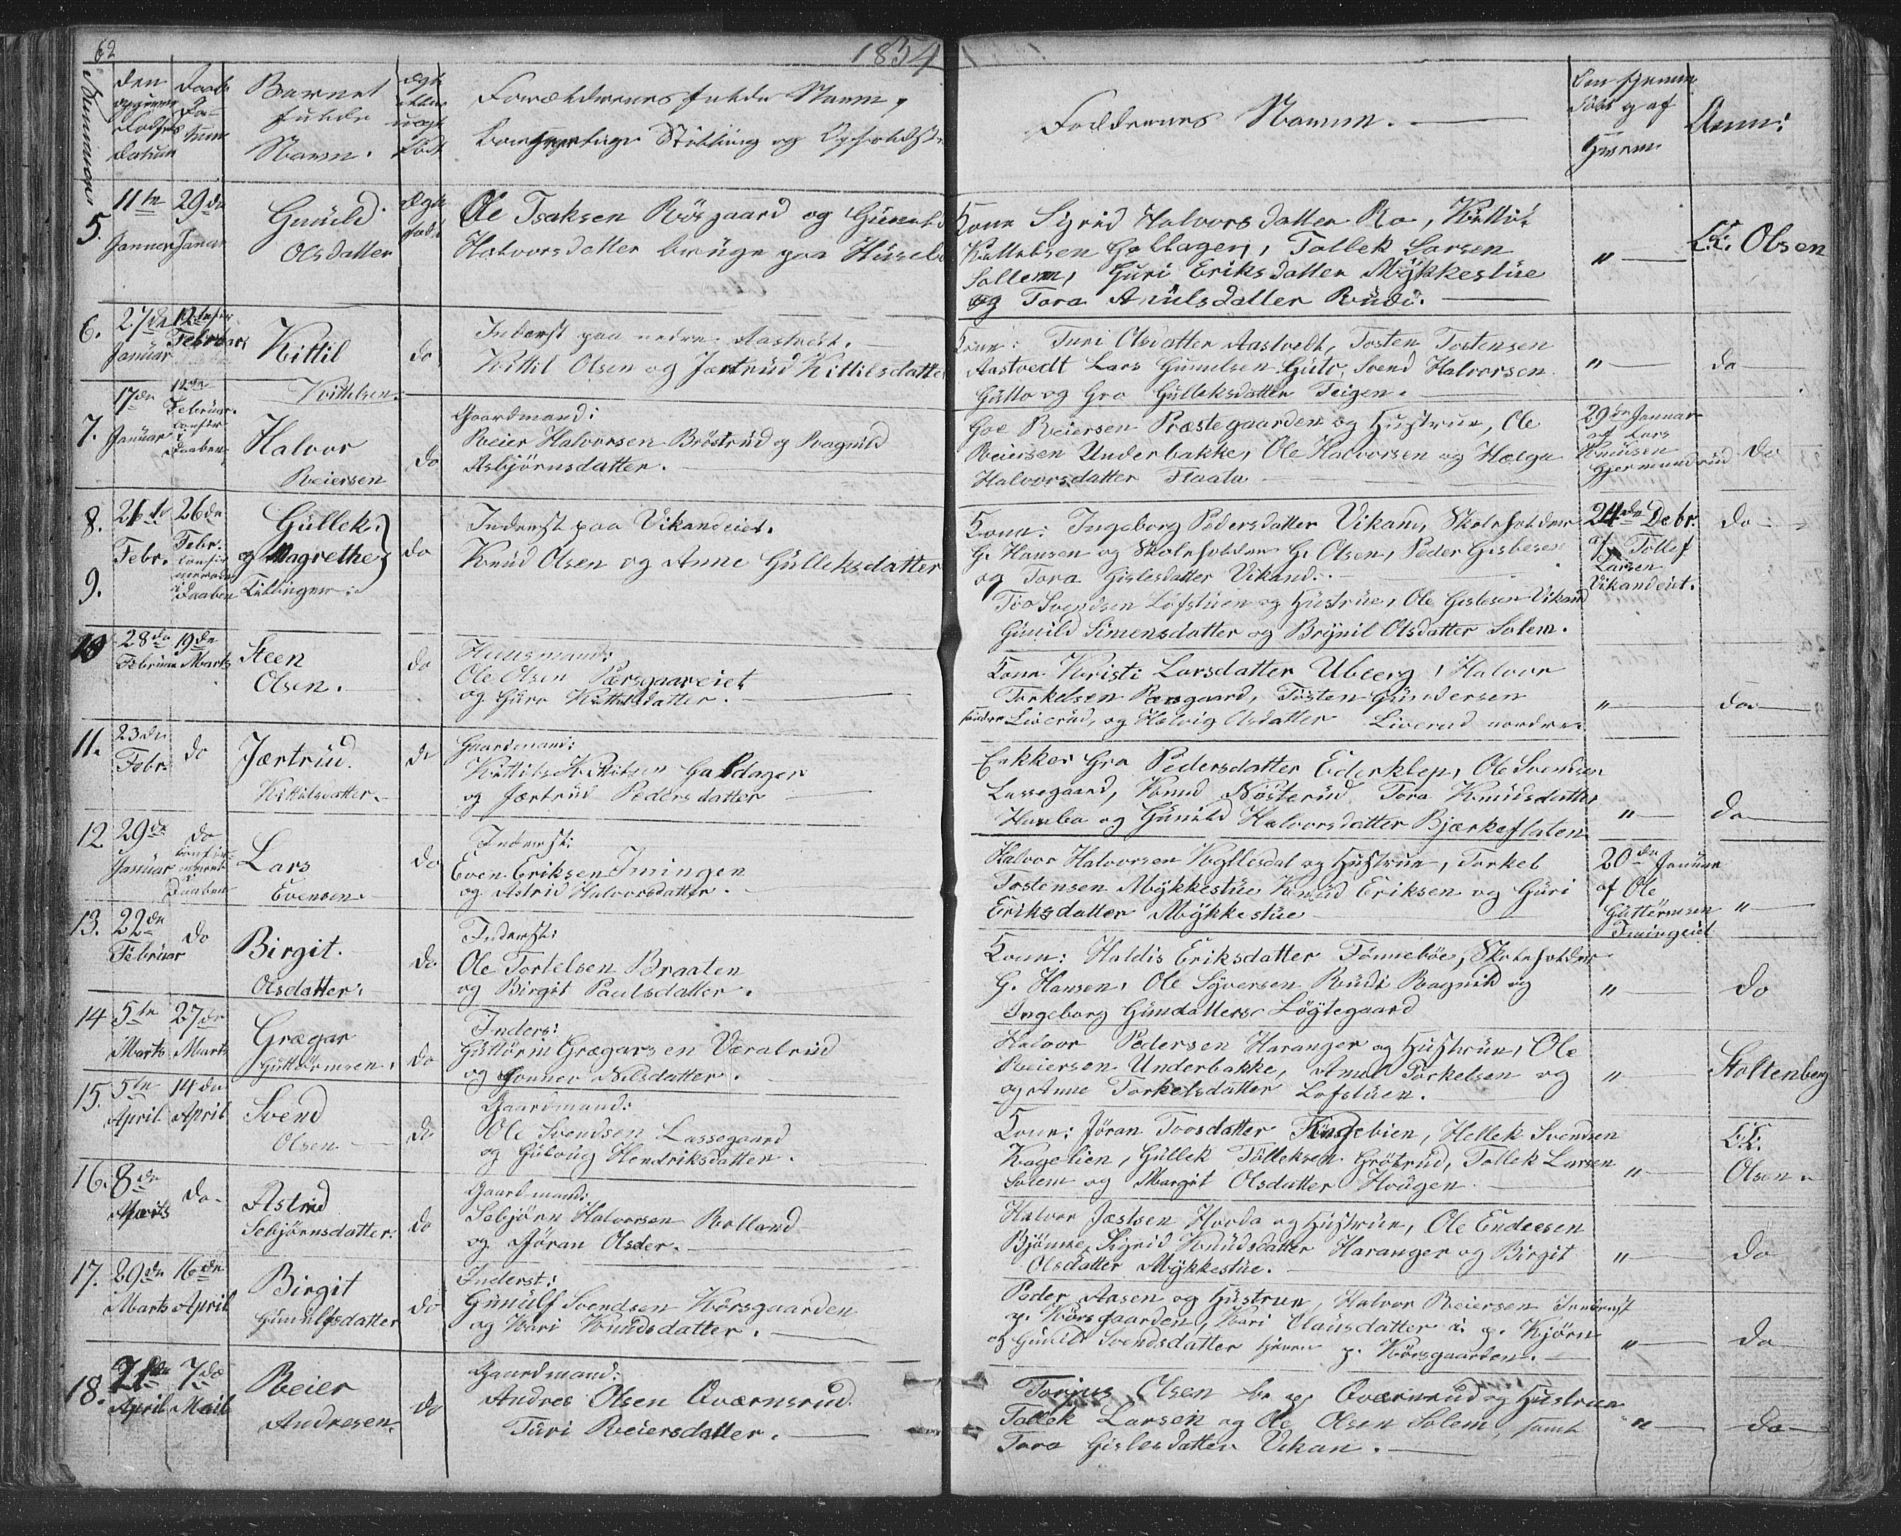 62
1834
Nummer
den
Fødsels
Datum
Daab
Barnets
fulde
Navn.
Ægte
eller
uægte
Født
Forældrenes fulde Navn,
borgerlige Stilling og Opholdst
Faddernes Navne.
Døbt og af
Hvem
Anm:
5.
11te
Januar
29de
Januar
Gunild
Olsdatter
Ægte
født
Ole Isaksen Rösgaard og Gunild
Halvorsdatter bruge paa Huseb
Kone Sigrid Halvorsdatter Ro, Kittil
Kittelsen Gollager, Tollek Larsen
Sollem, Guri Eriksdatter Mykkestue
og Tora Anulsdatter Rudi.
"
K: Olsen
6.
27de
Januar
12te
Februar
Kittil
Kittelsen
do
Inderst paa nedre Aastvedt.
Kittil Olsen og Jærtrud Kittilsdatter
Kone: Turi Olsdatter Aastvedt, Tosten Tostensen
Aastvedt Lars Gunulsen Gulv, Svend Halvorsen
Gutto og Gro Gulleksdatter Teigen.
"
do
7.
17de
Januar
12de
Februar
Daaben
Halvor
Reiersen
do
Gaardmand:
Reier Halvorsen Bröstrud og Ragnild
Asbjørnsdatter.
Goe Reiersen Præstegaarden og Hustrue, Ole
Reiersen Underbakke, Ole Halvorsen og Helga
Halvorsdatter Staata
29de Januar
af Lars
Knudsen
Gjermundrud
do
8.
9.
21de
Febr.
26de
Febr.
Daaben
Gullek
og Magrethe
Tvillinger:
do
Inderst paa Vikaneiet.
Knud Olsen og Anne Gulleksdatter
Kone: Ingeborg Pedersdatter Vikan, Skoleholder
G. Hansen og Skoleholder G. Olsen, Peder Gislesen
og Tora Gislesdatter Vikand.
Tro Svendsen Lofstuen og Hustrue, Ole Gislesen Vikand
Gunild Simensdatter og Brynil Olsdatter Solem.
24de Debr.
af Tollef
Larsen
Vikandeiet.
do
10
28de
Februar
19de
Marts
Steen
Olsen.
do
Huusmand:
Ole Olsen Pærsgaareiet
og Guro Kittilsdatter.
Kone Kristi Larsdatter Uberg, Halvor
Torkelsen Pærsgaard, Tosten Gundersen
søndre Liverud, og Helvig Olsdatter Liverud nordre
"
do
11.
23de
Febr.
do
Jærtrud.
Kittilsdatter.
do
Gaardmand:
Kittil Kittilsen Galdager
og Jærtrud Pedersdatter
Enkke Gro Pedersdatter Ederklep, Ole Svendsen
Lassegaard, Knud Nösterud Tora Knudsdatter
Hanbo og Gunild Halvorsdatter Bjærkeflaten
"
do
12
29de
Januar
do
Daaben
Lars
Evensen
do
Inderst:
Even Eriksen Imingen
og Astrid Halvorsdatter.
Halvor Halvorsen Koglesdal og Hustrue, Torkel
Tostensen Mykkestue Knud Eriksen og Guri
Eriksdatter Mykkestue
20de Januar
af Ole
Guttormsen
Imingeiet
"
13.
22de
Februar
do
Birgit.
Olsdatter.
do
Inderst:
Ole Torkelsen Braaten
og Birgit Paulsdatter.
Kone: Haldis Eriksdatter Fönnebøe, Skoleholder
G. Hansen, Ole Syversen Rudi Ragnild og
Ingeborg Gundatters Løgtegaard
"
do
14
5te
Marts
27de
Marts
Grægar
Guttormsen.
do
Inders:
Guttorm Grægarsen Væralrud
og Gonner Nilsdatter.
Halvor Pedersen Haranger og Hustrue, Ole
Reiersen Underbakke, Anul Torkelsen og
og Anne Torkelsdatter Lofstuen.
"
Stoltenberg
15.
5te
April
14de
April
Svend
Olsen
do
Gaardmand:
Ole Svendsen Lassegaard
og Gulvug Hendriksdatter.
Kone: Jøran Torsdatter Kagelien, Hellek Svendsen
Kagelien, Gullek Tolleksen Grötrud, Tollek Larsen
Solem og Margit Olsdatter Hougen
"
K:
Olsen
16.
8de
Marts
do.
Astrid
Sebjørnsdatter.
do
Gaardmand:
Sebjörn Halvorsen Rolland
og Jöran Olsder.
Halvor Jæstsen Hovda og Hustrue, Ole Endresen
Bjönne Sigrid Knudsdatter Haranger og Birgit
Olsdatter Mykkestue.
"
do
17.
29de
Marts
16de
April
Birgit
Gunulfsdatter
do
Inderst:
Gunulf Svendsen Korsgaarden
og Kari Knudsdatter.
Peder Aasen og Hustrue, Halvor Reiersen Inderst
p. Korsgaarden, Kari Clausdatter i. p. Kjörn
og Gunild Svendsdatter hjem p. Korsgaarden.
"
do
18.
21de
April
7de
Mai
Reier
Andresen.
do
Gaardmand:
Andres Olsen Qværnsrud
Turi Reiersdatter.
Torjus Olsen br. p. Qværnrud og Hustrue
Tollek Larsen og Ole Olsen Solem, samt
Tora Gislesdatter Vikan.
"
do